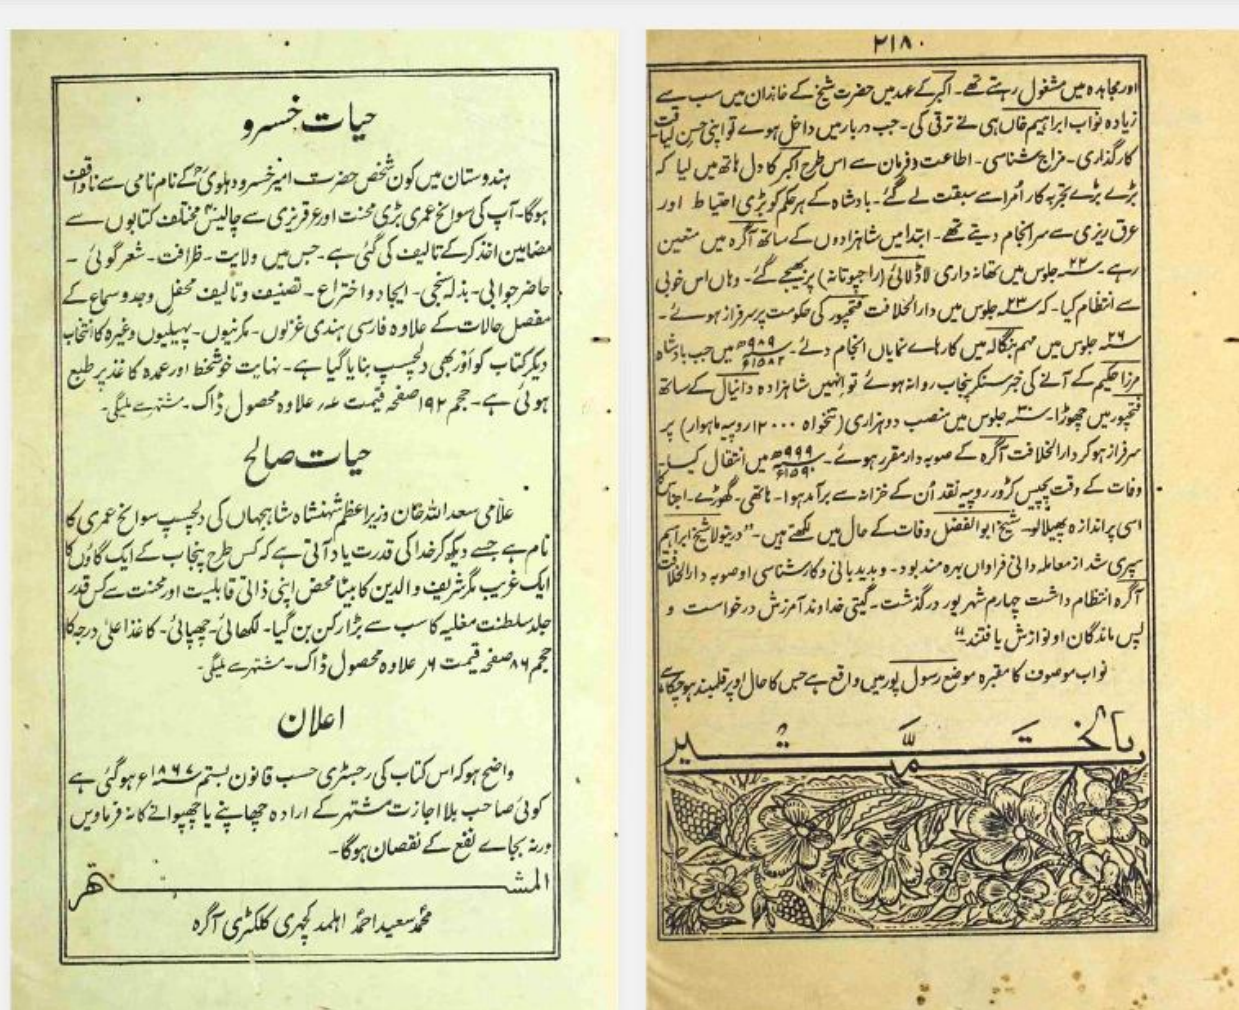 ۲۱۸
اور مجاہدہ میں مشغول رہتے تھے۔ اکبر کے عہد میں حضرت شیخ کے خاندان میں سب سے
زیادہ نواب ابراہیم خاں ہی نے ترقی کی۔ جب دربار میں داخل ہوے تو اپنی حسن لیاقت
کارگذاری۔ مزاج شناسی۔ اطاعت و فرمان سے اس طرح اکبر کا دل ہاتھ میں لیا کہ
بڑے بڑے تجربہ کار اُمرا سے سبقت لے گئے۔ بادشاہ کے ہر حکم کو بڑی احتیاط اور
عرق ریزی سے سرانجام دیتے تھے۔ ابتدا میں شاہزادوں کے ساتھ آگرہ میں متعین
رہے۔ ۲۲ سنہ جلوس میں تھانہ داری لاڈلائی (راجپوتانہ) پر بھیجے گئے۔ وہاں اس خوبی
سے انتظام کیا۔ کہ ۲۳ سنہ جلوس میں دارالخلافت فتحپور کی حکومت پر سرفراز ہوئے۔
۲۶ سنہ جلوس میں مہم بنگالہ میں کارہاے نمایاں انجام دئے۔ ۹۸۹ھ ۱۵۸۲ء میں جب بادشاہ
مرزا حکیم کے آنے کی خبر سنکر پنجاب روانہ ہوئے تو انہیں شاہزادہ دانیال کے ساتھ
فتحپور میں چھوڑا۔ ۳۰ سنہ جلوس میں منصب دو ہزاری (تنخواہ ۱۲۰۰۰ روپیہ ماہوار) پر
سرفراز ہو کر دارالخلافت آگرہ کے صوبہ دار مقرر ہوئے۔ ۹۹۹ھ ۱۵۹۰ء میں انتقال کیا۔
وفات کے وقت پچیس کڑور روپیہ نقد اُن کے خزانہ سے برآمد ہوا۔ ہاتھی۔ گھوڑے۔ اجناس کا
اسی پر اندازہ پھیلالو۔ شیخ ابوالفضل وفات کے حال میں لکھتے ہیں۔ ”درینولا شیخ ابراہیم
سپری شد از معاملہ دانی فراواں بہرہ مند بود۔ و بدیدبانی و کارشناسی او صوبہ دارالخلافت
آگرہ انتظام داشت چہارم شہریور درگذشت۔ گیتی خداوند آمرزش درخواست و
پس ماندگان او نوازش یافتند۔“
نواب موصوف کا مقبرہ موضع رسول پور میں واقع ہے جس کا حال اوپر قلمبند ہو چکا ہے
تمت بالخیر
حیات خسرو
ہندوستان میں کون شخص حضرت امیر خسرو دہلویؒ کے نام نامی سے ناواقف
ہوگا۔ آپ کی سوانح عمری بڑی محنت اور عرقریزی سے چالیس مختلف کتابوں سے
مضامین اخذ کر کے تالیف کی گئی ہے۔ جس میں ولایت۔ ظرافت۔ شعر گوئی۔
حاضر جوابی۔ بذلہ سنجی۔ ایجاد و اختراع۔ تصنیف و تالیف محفل وجد و سماع کے
مفصل حالات کے علاوہ فارسی ہندی غزلوں۔ مکرنیوں۔ پہیلیوں وغیرہ کا انتخاب
دیکر کتاب کو اَور بھی دلچسپ بنایا گیا ہے۔ نہایت خوشخط اور عمدہ کاغذ پر طبع
ہوئی ہے۔ حجم ۱۹۲ صفحہ قیمت علاوہ محصول ڈاک۔ مشتہر سے ملیگی۔
حیات صالح
علامی سعد اللہ خان وزیر اعظم شہنشاہ شاہجہاں کی دلچسپ سوانح عمری کا
نام ہے جسے دیکھ کر خدا کی قدرت یاد آتی ہے کہ کس طرح پنجاب کے ایک گاؤں کا
ایک غریب مگر شریف والدین کا بیٹا محض اپنی ذاتی قابلیت اور محنت سے کس قدر
جلد سلطنت مغلیہ کا سب سے بڑا رکن بن گیا۔ لکھائی۔ چھپائی۔ کاغذ اعلیٰ درجہ کا
حجم ۸۶ صفحہ قیمت ۶ر علاوہ محصول ڈاک۔ مشتہر سے ملیگی۔
اعلان
واضح ہو کہ اس کتاب کی رجسٹری حسب قانون بستم ۱۸۶۷ء ہو گئی ہے
کوئی صاحب بلا اجازت مشتہر کے ارادہ چھاپنے یا چھپوانے کا نہ فرماویں
ورنہ بجاے نفع کے نقصان ہوگا۔
المشتہر
محمد سعید احمد اہلمد کچہری کلکٹری آگرہ